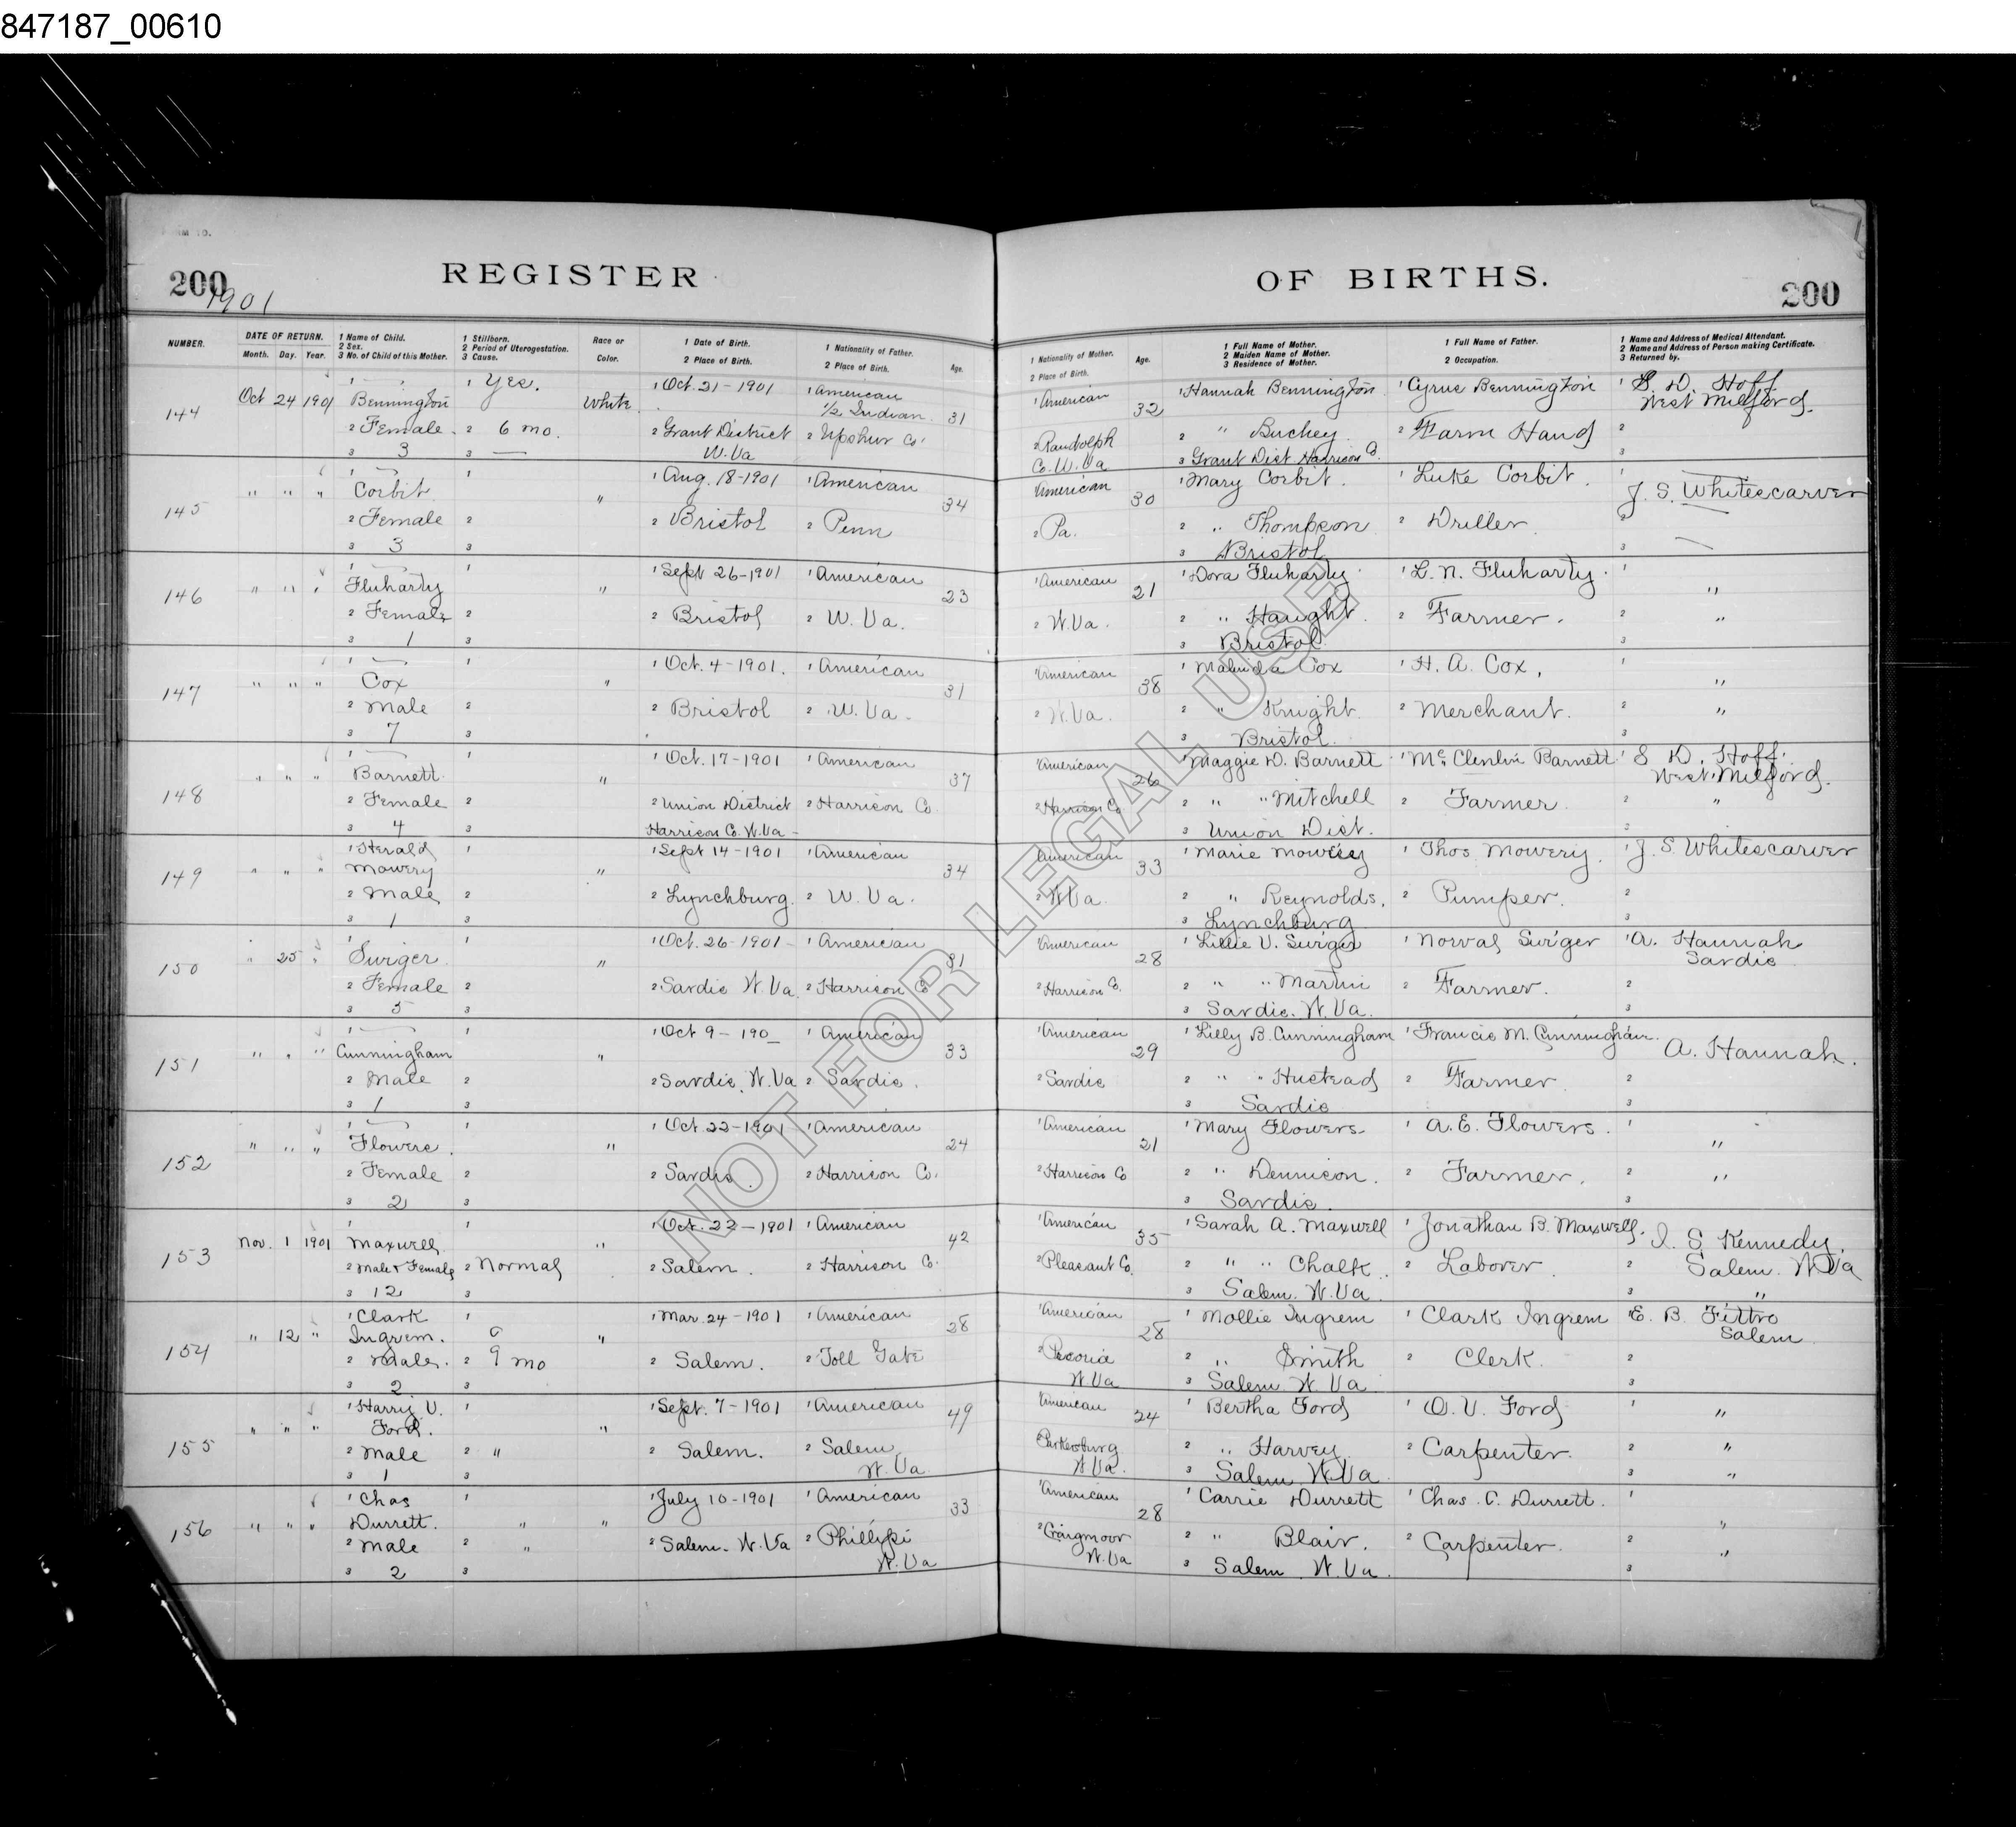 847187_00610
200 REGISTER OF BIRTHS. 200
1901
NUMBER. DATE OF RETURN. Month. Day. Year. 1 Name of Child. 2 Sex. 3 No. of Child of this Mother. 1 Stillborn. 2 Period of Uterogestation. 3 Cause. Race or Color. 1 Date of Birth. 2 Place of Birth. 1 Nationality of Father. 2 Place of Birth. Age. 1 Nationality of Mother. 2 Place of Birth. Age. 1 Full Name of Mother. 2 Maiden Name of Mother. 3 Residence of Mother. 1 Full Name of Father. 2 Occupation. 1 Name and Address of Medical Attendant. 2 Name and Address of Person making Certificate. 3 Returned by.
144 Oct 24 1901 1 — Bennington 1 Yes. White 1 Oct. 21-1901 1 American 1/2 Indian 31 1 American 32 1 Hannah Bennington 1 Cyrus Bennington 1 S. D. Hoff West Milford.
2 Female 2 6 mo. 2 Grant District W. Va 2 Upshur Co. 2 Randolph Co. W. Va 2 " Buchey 2 Farm Hand 2
3 3 3 — 3 Grant Dist Harrison Co. 3
145 " " " 1 — Corbit 1 " 1 Aug. 18-1901 1 American 34 1 American 30 1 Mary Corbit. 1 Luke Corbit. 1 J. S. Whitescarver
2 Female 2 2 Bristol 2 Penn 2 Pa. 2 " Thompson 2 Driller 2
3 3 3 3 Bristol 3 —
146 " " " 1 — Fluharty 1 " 1 Sept 26-1901 1 American 23 1 American 21 1 Dora Fluharty 1 L. N. Fluharty. 1 "
2 Female 2 2 Bristol 2 W. Va. 2 W. Va. 2 " Haught 2 Farmer. 2 "
3 1 3 3 Bristol 3
147 " " " 1 — Cox 1 " 1 Oct. 4-1901. 1 American 31 1 American 38 1 Malinda Cox 1 H. A. Cox, 1 "
2 Male 2 2 Bristol 2 W. Va. 2 W. Va. 2 " Knight. 2 Merchant. 2 "
3 7 3 3 Bristol. 3
148 " " " 1 — Barnett 1 " 1 Oct. 17-1901 1 American 37 1 American 26 1 Maggie D. Barnett 1 McClenlin Barnett 1 S. D. Hoff. West Milford.
2 Female 2 2 Union District Harrison Co. W. Va 2 Harrison Co. 2 Harrison Co. 2 " " Mitchell 2 Farmer. 2 "
3 4 3 3 Union Dist. 3
149 " " " 1 Herald Mowery 1 " 1 Sept 14-1901 1 American 34 American 33 1 Marie Mowery 1 Thos. Mowery. 1 J. S. Whitescarver
2 Male 2 2 Lynchburg. 2 W. Va. 2 W Va. 2 " Reynolds. 2 Pumper. 2
3 1 3 3 Lynchburg 3
150 " 25 " 1 Swiger 1 " 1 Oct. 26-1901 1 American 31 1 American 28 1 Lillie V. Swiger 1 Norval Swiger 1 A. Hannah Sardis
2 Female 2 2 Sardis W. Va. 2 Harrison Co 2 Harrison Co. 2 " " Martin 2 Farmer. 2
3 5 3 3 Sardis. W. Va. 3
151 " " " 1 — Cunningham 1 " 1 Oct 9-190_ 1 American 33 1 American 29 1 Lilly B. Cunningham 1 Francis M. Cunningham. A. Hannah.
2 Male 2 2 Sardis. W. Va 2 Sardis. 2 Sardis 2 " " Hustead 2 Farmer 2
3 1 3 3 Sardis 3
152 " " " 1 — Flowers. 1 " 1 Oct. 22-1901 1 American 24 1 American 21 1 Mary Flowers 1 A. E. Flowers. 1 "
2 Female 2 2 Sardis. 2 Harrison Co. 2 Harrison Co 2 " Dennison. 2 Farmer. 2 "
3 2 3 3 Sardis. 3
153 Nov. 1 1901 1 Maxwell 1 " 1 Oct. 22-1901 1 American 42 1 American 35 1 Sarah A. Maxwell 1 Jonathan B. Maxwell. I. S. Kennedy.
2 Male & Female 2 Normal 2 Salem. 2 Harrison Co. 2 Pleasant Co. 2 " " Chalk. 2 Laborer 2 Salem. W Va
3 12 3 3 Salem. W. Va 3 "
154 " 12 " 1 Clark Ingrem. 1 " 1 Mar. 24-1901 1 American 28 1 American 28 1 Mollie Ingrem 1 Clark Ingrem 1 E. B. Fittro Salem
2 Male. 2 9 mo 2 Salem. 2 Toll Gate 2 Peoria W Va 2 " Smith 2 Clerk. 2
3 2 3 3 Salem W. Va 3
155 " " " 1 Harry V. Ford. 1 " 1 Sept. 7-1901 1 American 49 American 24 1 Bertha Ford 1 O. V. Ford 1 "
2 Male 2 " 2 Salem. 2 Salem W. Va. Parkersburg W Va. 2 " Harvey 2 Carpenter. 2 "
3 1 3 3 Salem W. Va 3 "
156 " " " 1 Chas Durrett. 1 " " 1 July 10-1901 1 American 33 1 American 28 1 Carrie Durrett 1 Chas. C. Durrett. 1 "
2 Male 2 " 2 Salem. W. Va 2 Phillipi W. Va 2 Craigmoor W. Va 2 " Blair. 2 Carpenter. 2 "
3 2 3 3 Salem W. Va. 3
NOT FOR LEGAL USE